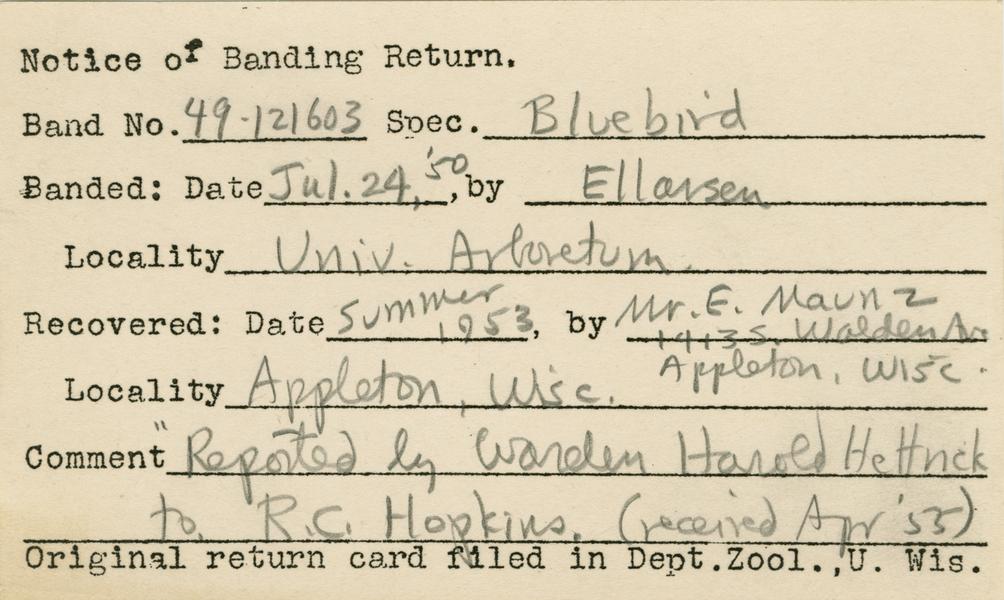 Notice of Banding Return.
Band No. 49-121603 Spec. Bluebird
Banded: Date Jul. 24, '50, by Ellarsen
Locality Univ. Arboretum.
Recovered: Date Summer 1953, by Mr. E. Maunz
1413 S. Walden Av.
Appleton, Wisc.
Locality Appleton, Wisc.
Comment "Reported by Warden Harold Hettrick
to R.C. Hopkins. (received Apr '55)
Original return card filed in Dept.Zool.,U. Wis.